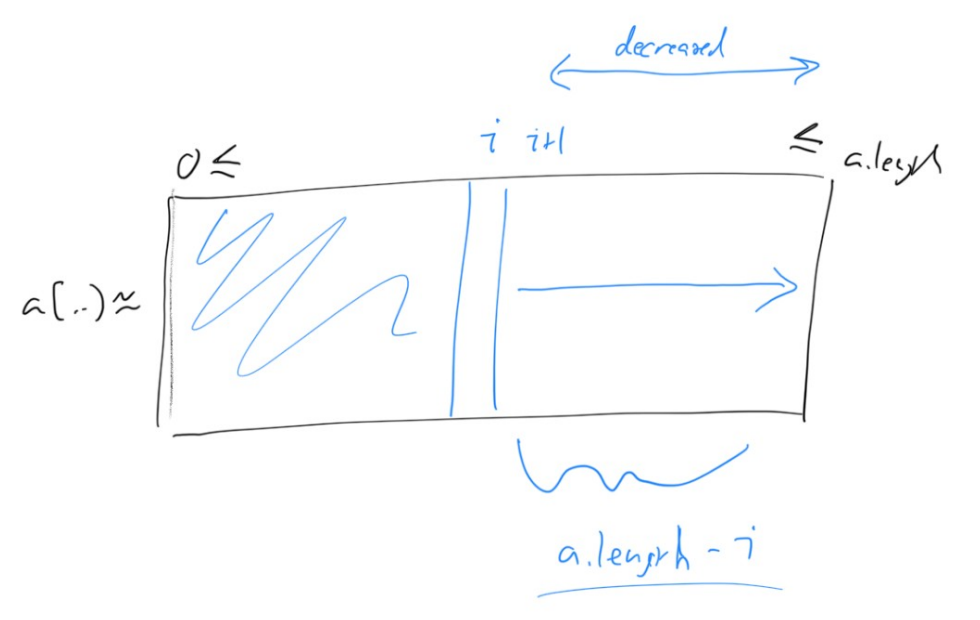 decreased
i i+1
0 ≤ ≤ a.length
a[..] ≈
a.length - i